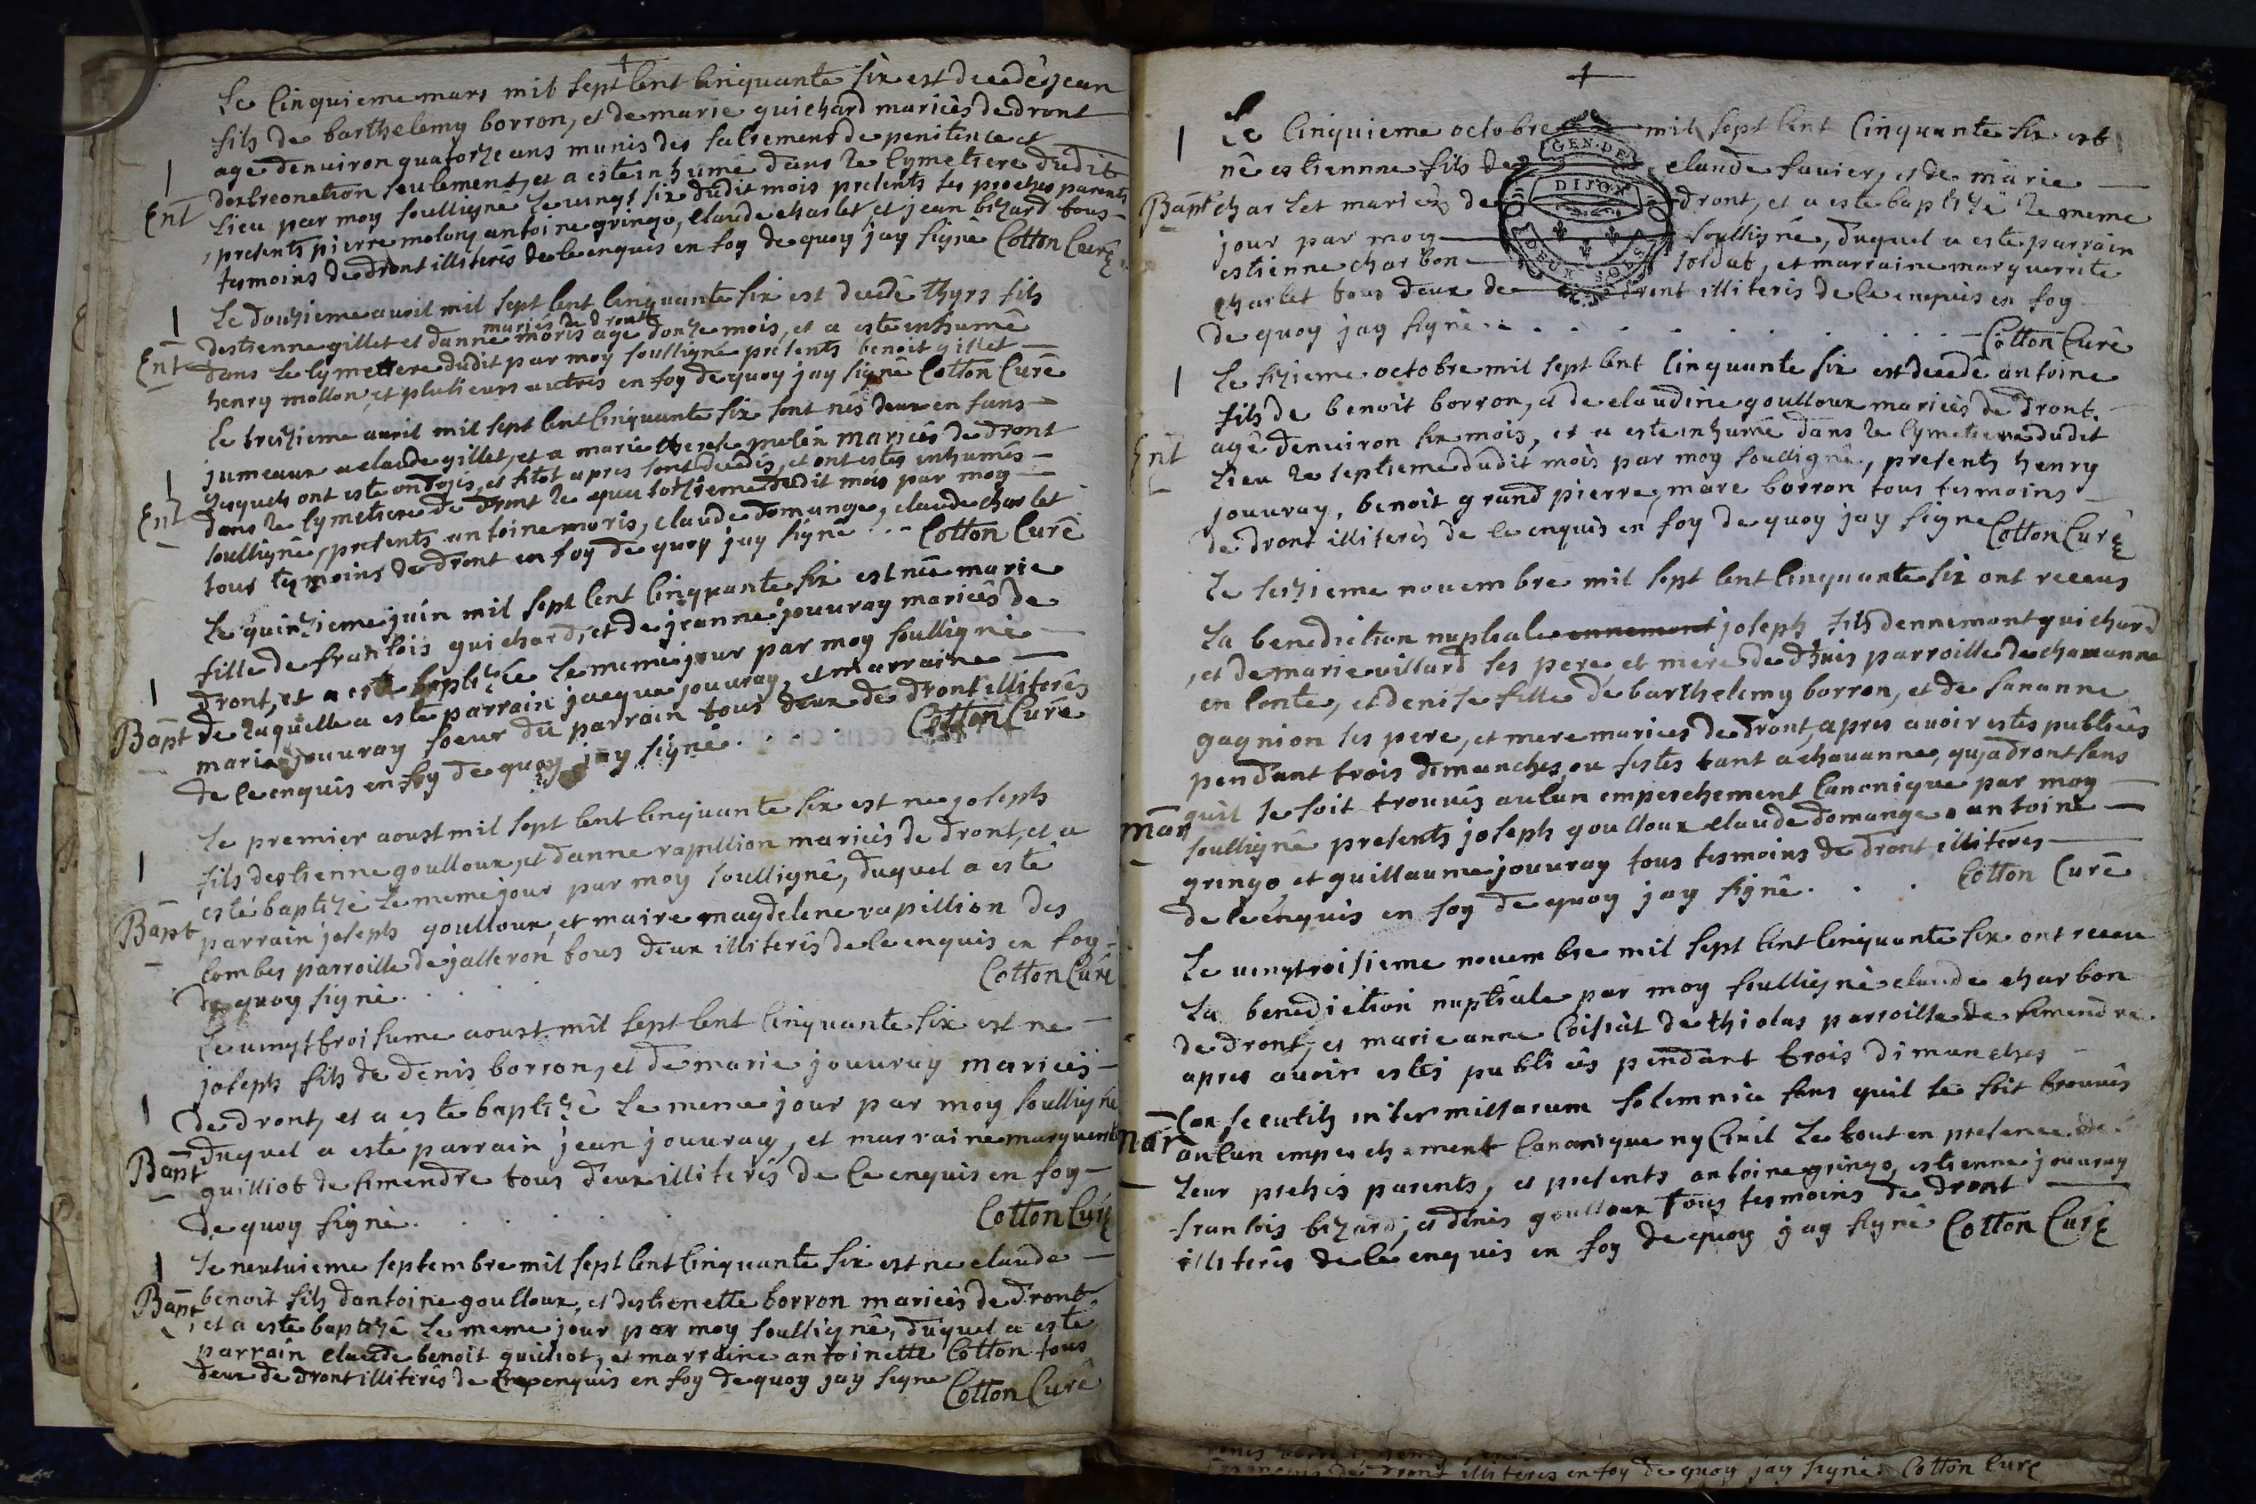 Le Cinquieme mars mil sept Cent Cinquante six est decedè jean
fils de barthelemy borron, et de marie guichard mariès de dront
agè denuiron quatorze ans munis des sacrements de penitence et
dextreonction seulement, et a estè inhumè dans le Cymetiere dudit
Ent lieu par moy soussignè le vingt six dudit mois presents ses proches parents
, presents pierre molony antoine gringo, claude charlet et jean bizard tous
tesmoins de dront illiterès de ce enquis en foy de quoy jay signe Cotton Curè
Le douzieme auril mil sept Cent Cinquante six est decedè thyrs fils
mariès de dront
destienne gillet et danne moris agè donze mois, et a estè inhumè
Ent dans le Cymettere dudit par moy soussignè presents benoit gillet
henry mollon, et plusieurs autres en foy de quoy jay signè Cotton Curè
Le treizieme auril mil sept Cent Cinquante six sont nès deux enfans
jumeaux a claude gillet, et a marie therese mariès de dront
lesquels ont estè ondoiès, et sitot apres sont decedès, et ont estès inhumès
Ent dans le Cymetiere de dront le quatorzieme dudit mois par moy
soussignè, presents antoine moris, claude domange, claude charlet
tous tymoins de dront en foy de quoy jay signè .. Cotton Curè
Le quinzieme juin mil sept Cent Cinquante six est nèe marie
fille de francois guichard, et de jeanne jouuray mariès de
dront, et a estè baptizèe le meme jour par moy soussignè
Bapt de laquelle a estè parrain jacque jouuray, et marraine
marie jouuray soeur du parrain tous deux de dront illiterès
de ce enquis en foy de quoy jay signè.... Cotton Curè
Le premier aoust mil sept Cent Cinquante six est ne joseph
fils destienne goulloux, et danne rapillion mariès de dront, et a
estè baptizè le meme jour par moy soussignè, duquel a estè
Bapt parrain joseph goulloux, et maire magdelene rapillion des
Combes parroisse de jasseron tous deux illiterès de ce enquis en foy
de quoy signè.... Cotton Curè
Le vingt troisieme aoust mil sept Cent Cinquante six est ne
joseph fils de denis borron, et de marie jouuray mariès
de dront, et a estè baptizè le meme jour par moy soussigne
Bapt duquel a estè parrain jean jouuray, et marraine marguerite
guilliot de simendre tous deux illiterès de ce enquis en foy
de quoy signè..... Cotton Curè
Le neuuieme septembre mil sept Cent Cinquante six est ne claude
Bapt benoit fils dantoine goulloux, et destienette borron mariès de dront
, et a estè baptizè le meme jour par moy soussignè, duquel a estè
parrain claude benoit guichot, et marraine antoinette Cotton tous
deux de dront illiterès de enquis en foy de quoy jay signe Cotton Curè
Le Cinquieme octobre mil sept Cent Cinquante six est
nè estiennne fils de claude fauier, et de marie
Bapt charlet mariès de dront, et a este baptizè le meme
jour par moy soussignè, duquel a este parrain
estienne charbon soldat, et marraine marguerrite
charlet tous deux de dront illiterès de ce enquis en foy
de quoy jay signè.. Cotton Curè
GEN.DE DIJON DEUX SOLS
Le sizieme octobre mil sept Cent Cinquante six est decedè antoine
fils de benoit borron, et de claudine goulloux mariès de dront.
Ent agè denuiron six mois, et a este inhumè dans le Cymetiere dudit
lieu le septieme dudit mois par moy soussignè, presents henry
jouuray, benoit grand pierre, marc borron tous tesmoins
de dront illiterès de ce enquis en foy de quoy jay signe Cotton Curè
Le seizieme nouembre mil sept Cent Cinquante six ont receus
la benediction nuptiale ennemont joseph fils dennemont guichard
, et de marie villard ses pere, et mere de dhuis parroisse de chauanne
en Conte, et denise fille de barthelemy borron, et de sananne
gagnion ses pere, et mere mariès de dront, apres auoir estès publièes
pendant trois dimanches, ou festes tant a chauanne, qua dront sans
mar quil se soit trouuès aucun empeschement Canonique par moy
soussignè presents joseph goulloux claude domange antoine
gringo et guillaume jouuray tous tesmoins de dront illiteres
de ce enquis en foy de quoy jay signè... Cotton Curè
Le vingtroisieme nouembre mil sept Cent Cinquante six ont receu
La benediction nuptiale par moy soussignè claude charbon
de dront, et marie anne Coisiat de thiolas parroisse de simendre.
apres auoir estès publièes pendant trois dimanches
Consecutifs inter missarum solemnia sans quil se soit trouuès
mar aucun empeschement Canonique ny Ciuil le tout en presence de
leur prohès parents, et presents antoine gringo, estienne jouuray
francois bizard, et denis goulloux tous tesmoins de dront
illiterès de ce enquis en foy de quoy jay signè Cotton Curè
de dront illiteres en foy de quoy jay signè Cotton Curè